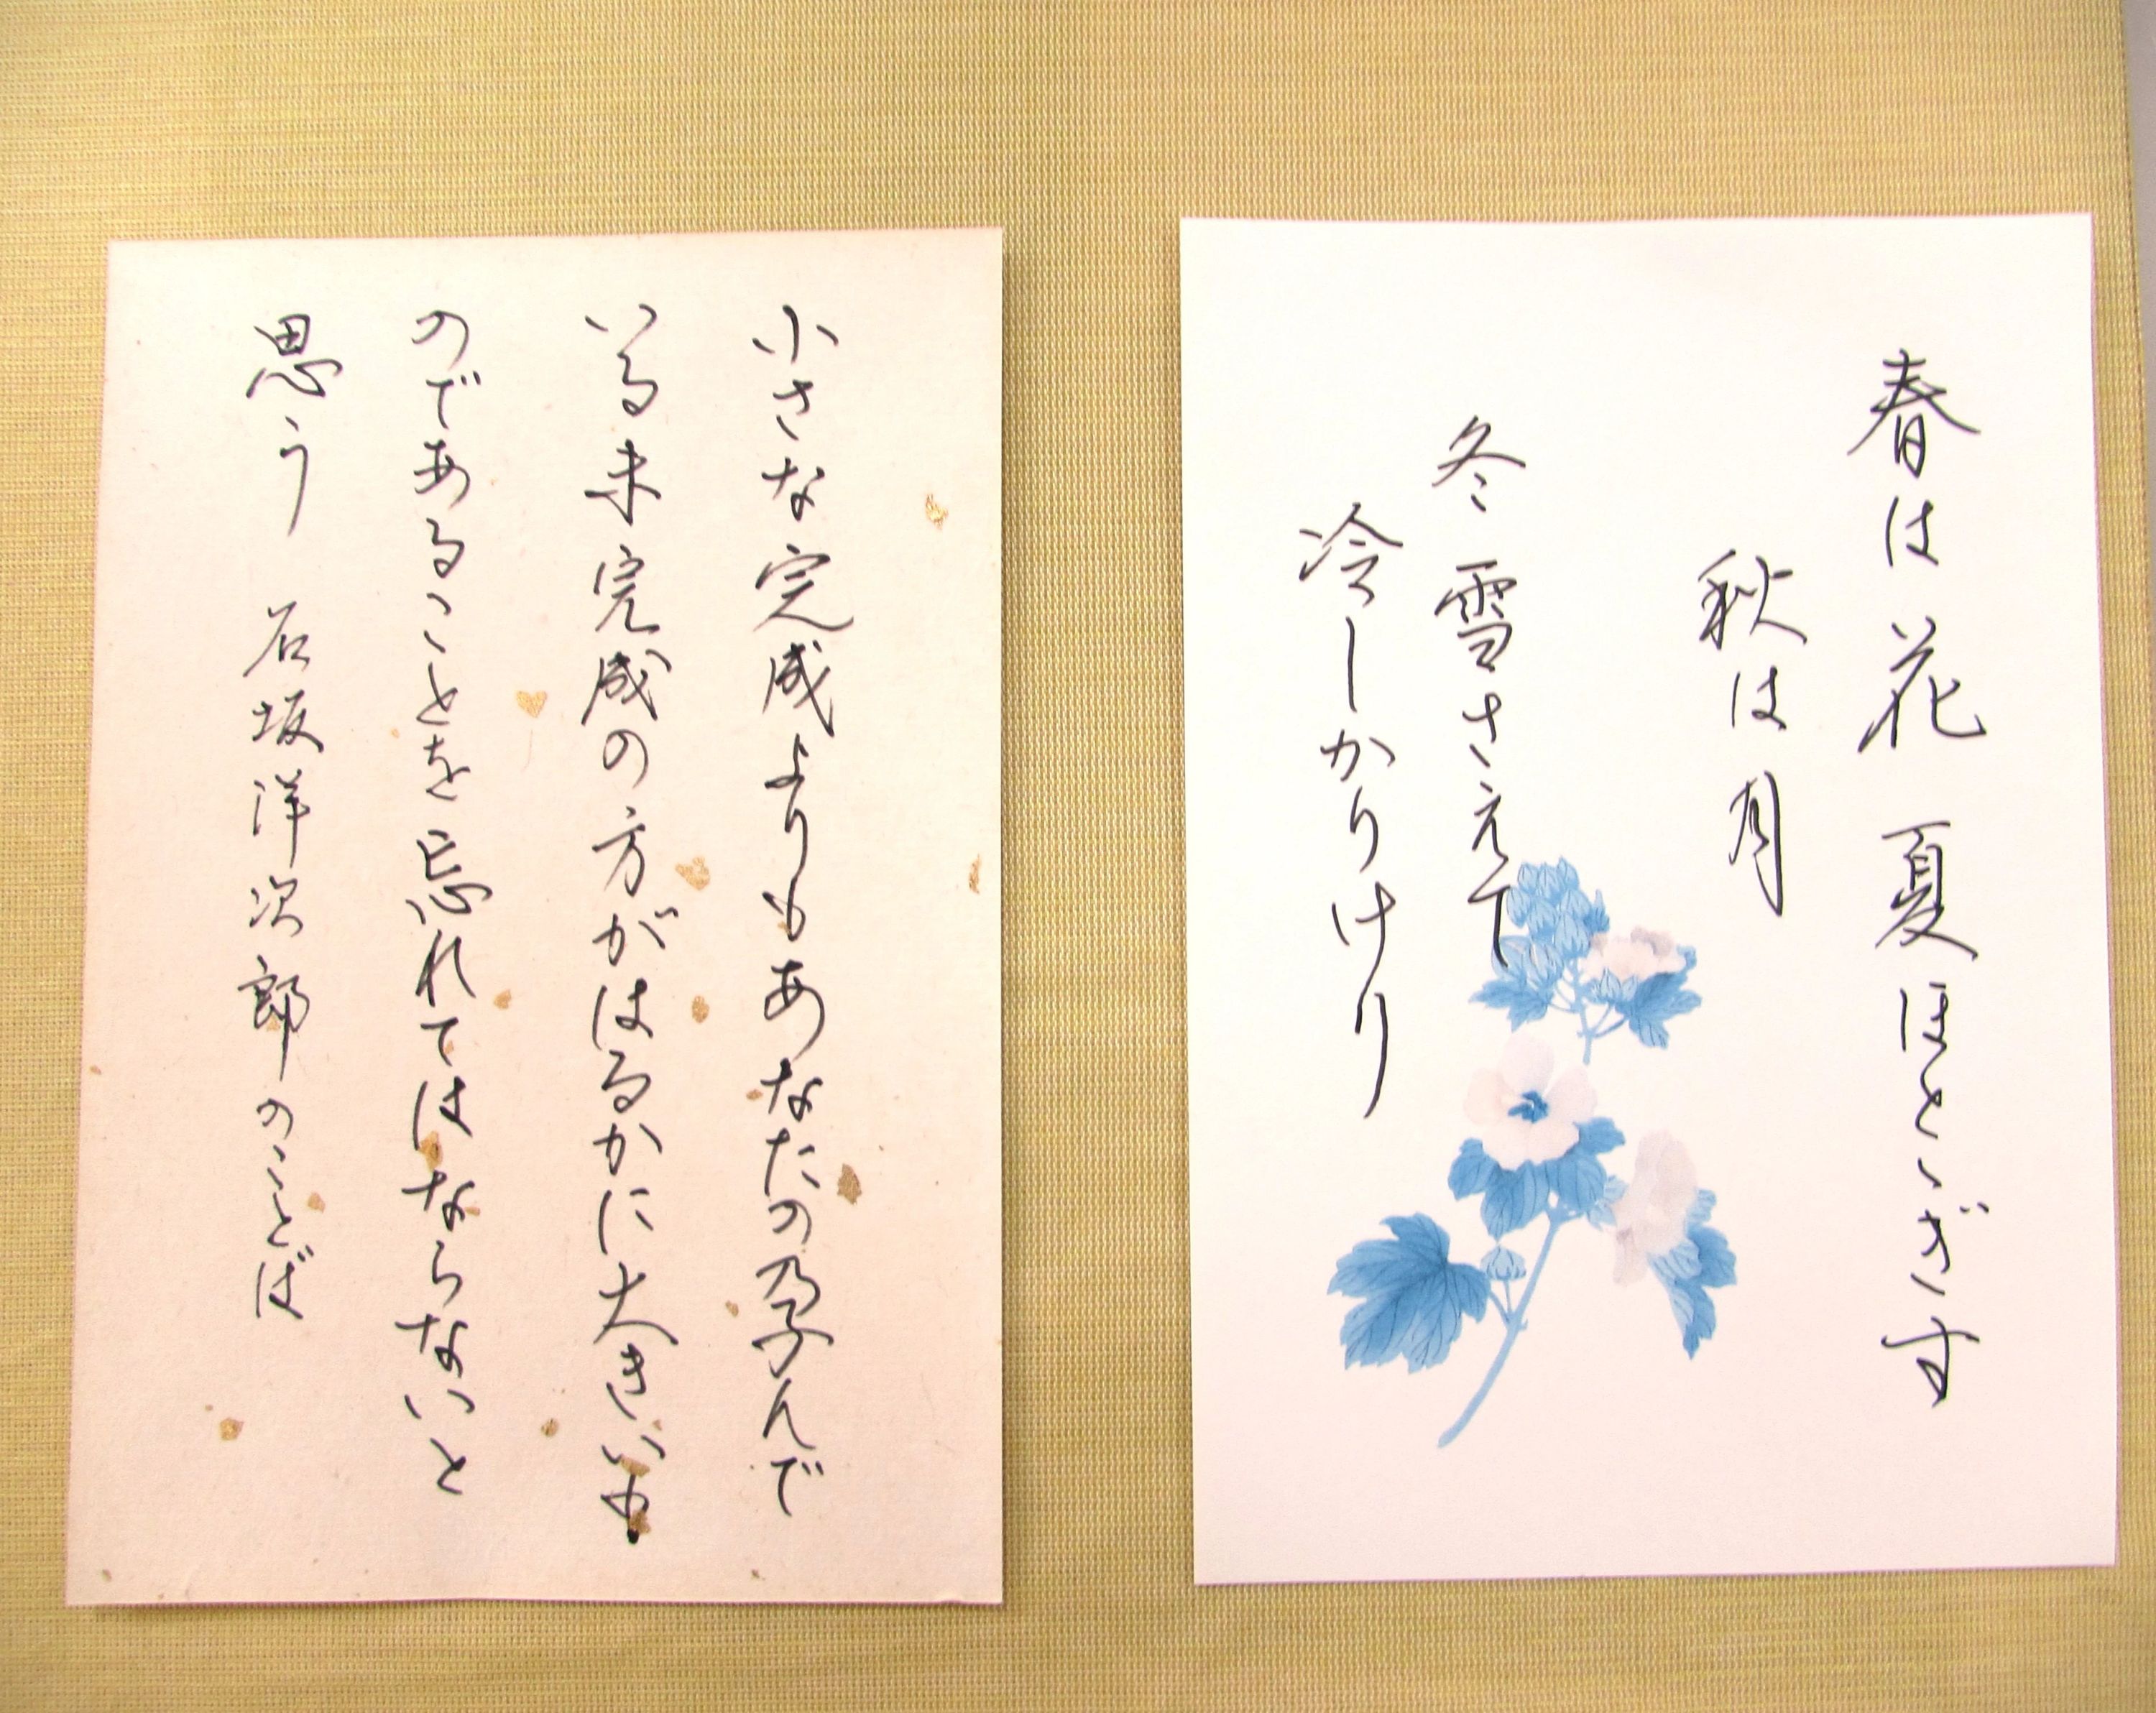 春は花夏ほとゝぎす
秋は月
冬雪さえて
冷しかりけり
小さな完成よりもあなたの孕んで
いる未完成の方がはるかに大きいも
のであることを忘れてはならないと
思う 石坂洋次郎のことば